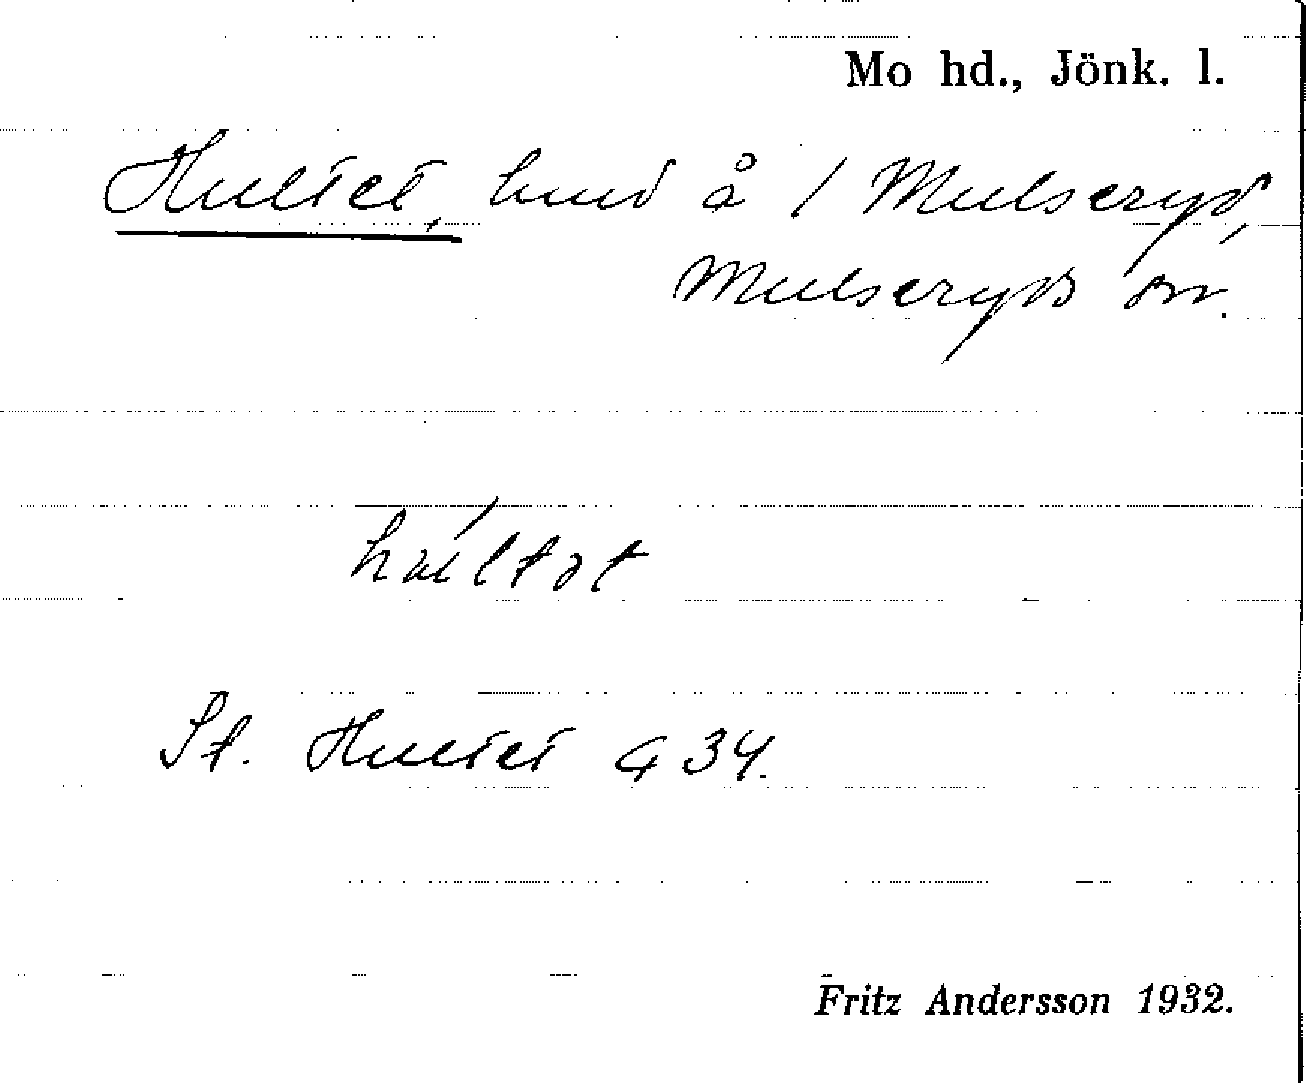 Mo hd., Jönk. l.
Hultet, hmd å 1 Mulseryd,
Mulseryds sn.
St. Hultet G 34.
Fritz Andersson 1932.